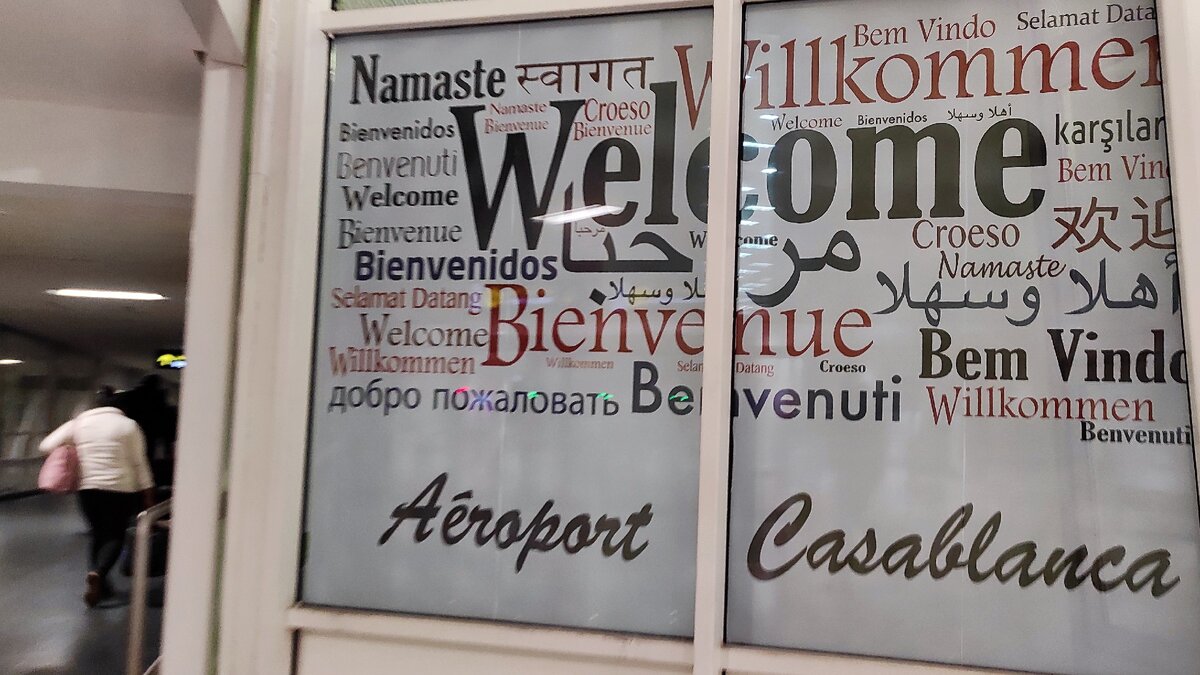 Bem Vindo
Selamat Data
Namaste स्वागत
Willkommen
Namaste
Croeso
Bienvenue
Bienvenue
Welcome
Bienvenidos
أهلا وسهلا
Bienvenidos
Welcome
karşılar
Benvenuti
Bem Vin
Welcome
مرحبا
Bienvenue
Croeso
欢迎
مرحبا
Bienvenidos
Namaste
Selamat Datang
أهلا وسهلا
أهلا وسهلا
Welcome
Bienvenue
Bem Vindo
Willkommen
Willkommen
Selamat Datang
Croeso
добро пожаловать
Benvenuti
Willkommen
Benvenuti
Aéroport
Casablanca